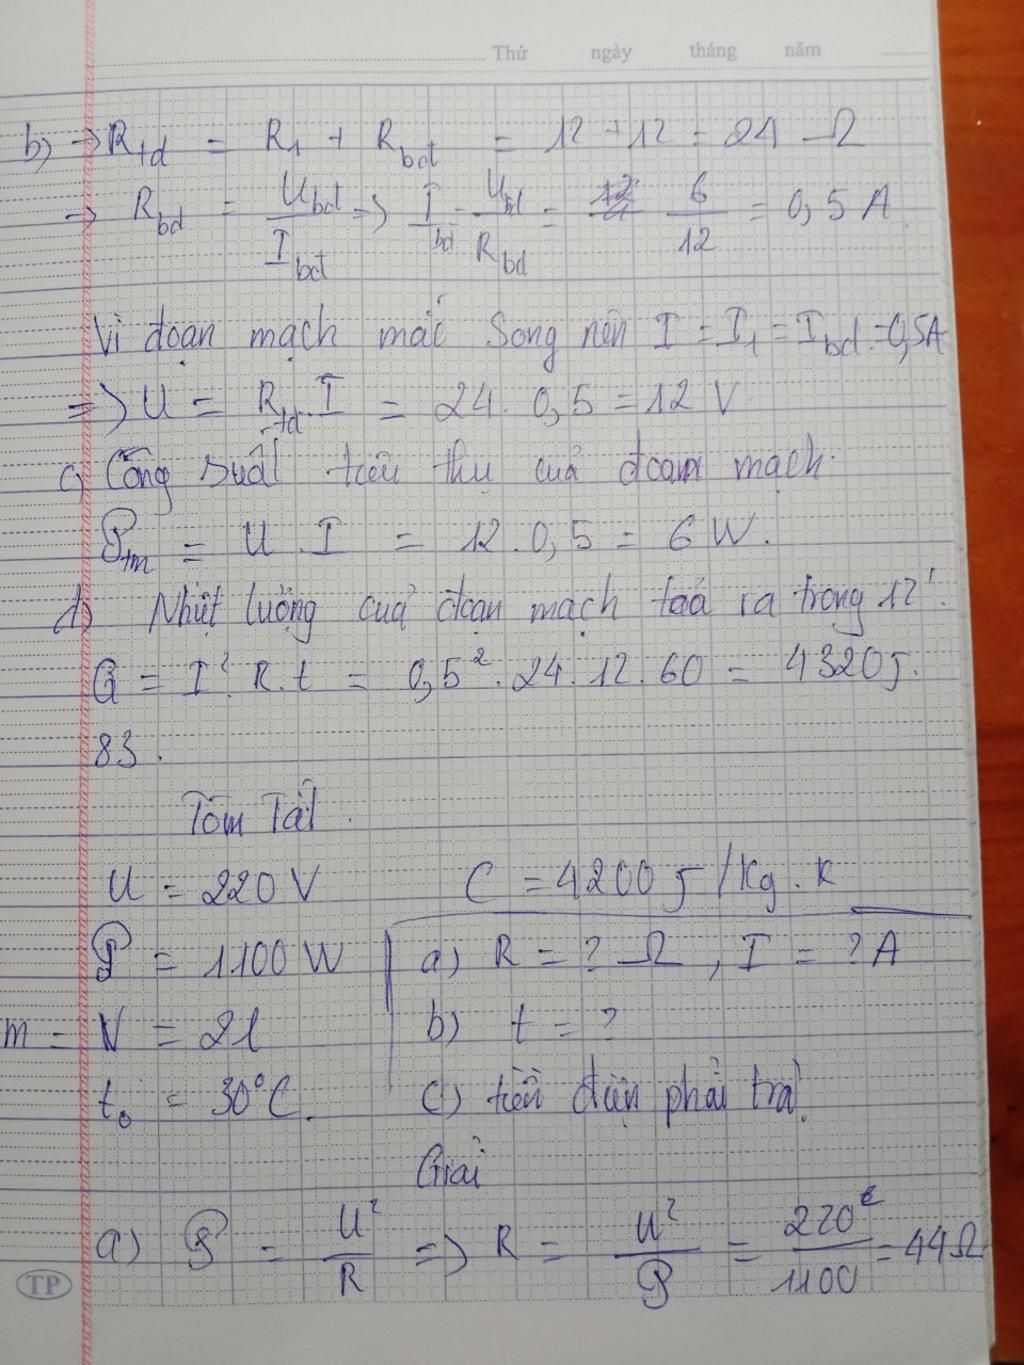 Thứ ngày tháng năm
b) => Rtđ = R1 + Rbđ = 12 + 12 = 24 Ω
=> Rbđ = Ubđ / Ibđ => Ibđ = Ubđ / Rbđ = 6 / 12 = 0,5 A
Vì đoạn mạch mắc Song nên I = I1 = Ibđ = 0,5A
=> U = Rtđ . I = 24 . 0,5 = 12 V
c) Công suất tiêu thụ cuả đoạn mạch.
𝒫tm = U . I = 12 . 0,5 = 6 W.
d) Nhiệt lường cuả đoạn mạch toả ra trong 12'.
Q = I² . R . t = 0,5² . 24 . 12 . 60 = 4320 J.
83.
Tóm Tắt.
U = 220 V C = 4200 J /Kg . K
𝒫 = 1100 W a) R = ? Ω , I = ? A
m = V = 2l b) t = ?
t₀ = 30°C. c) tiền điện phải trả.
Giải
a) 𝒫 = U² / R => R = U² / 𝒫 = 220² / 1100 = 44 Ω
TP